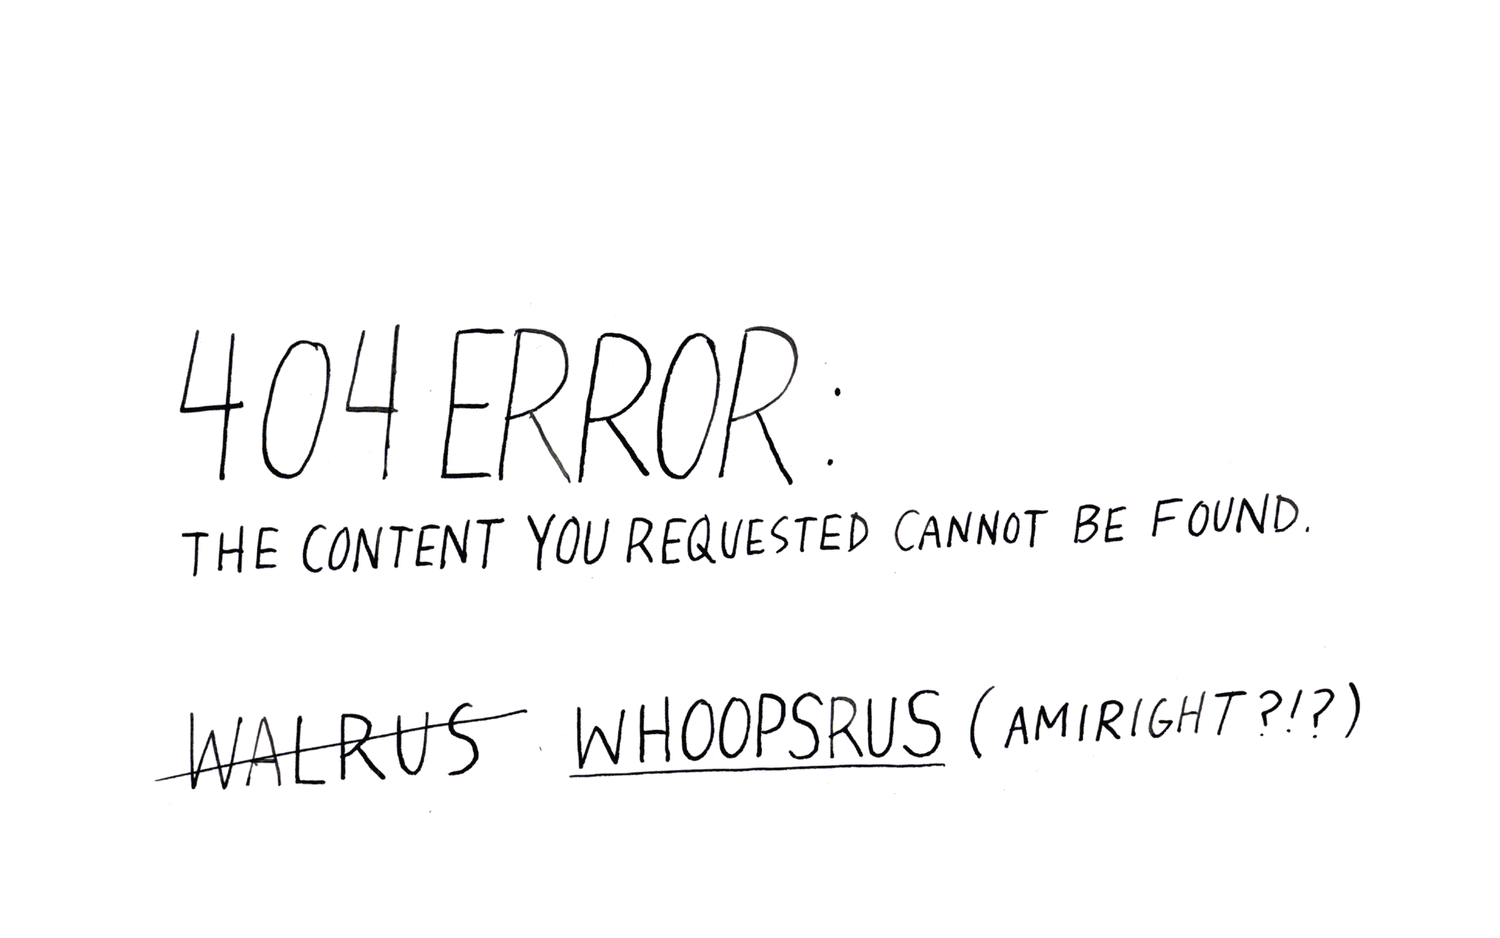 404 ERROR:
THE CONTENT YOU REQUESTED CANNOT BE FOUND.
WALRUS WHOOPSRUS (AMIRIGHT?!?)